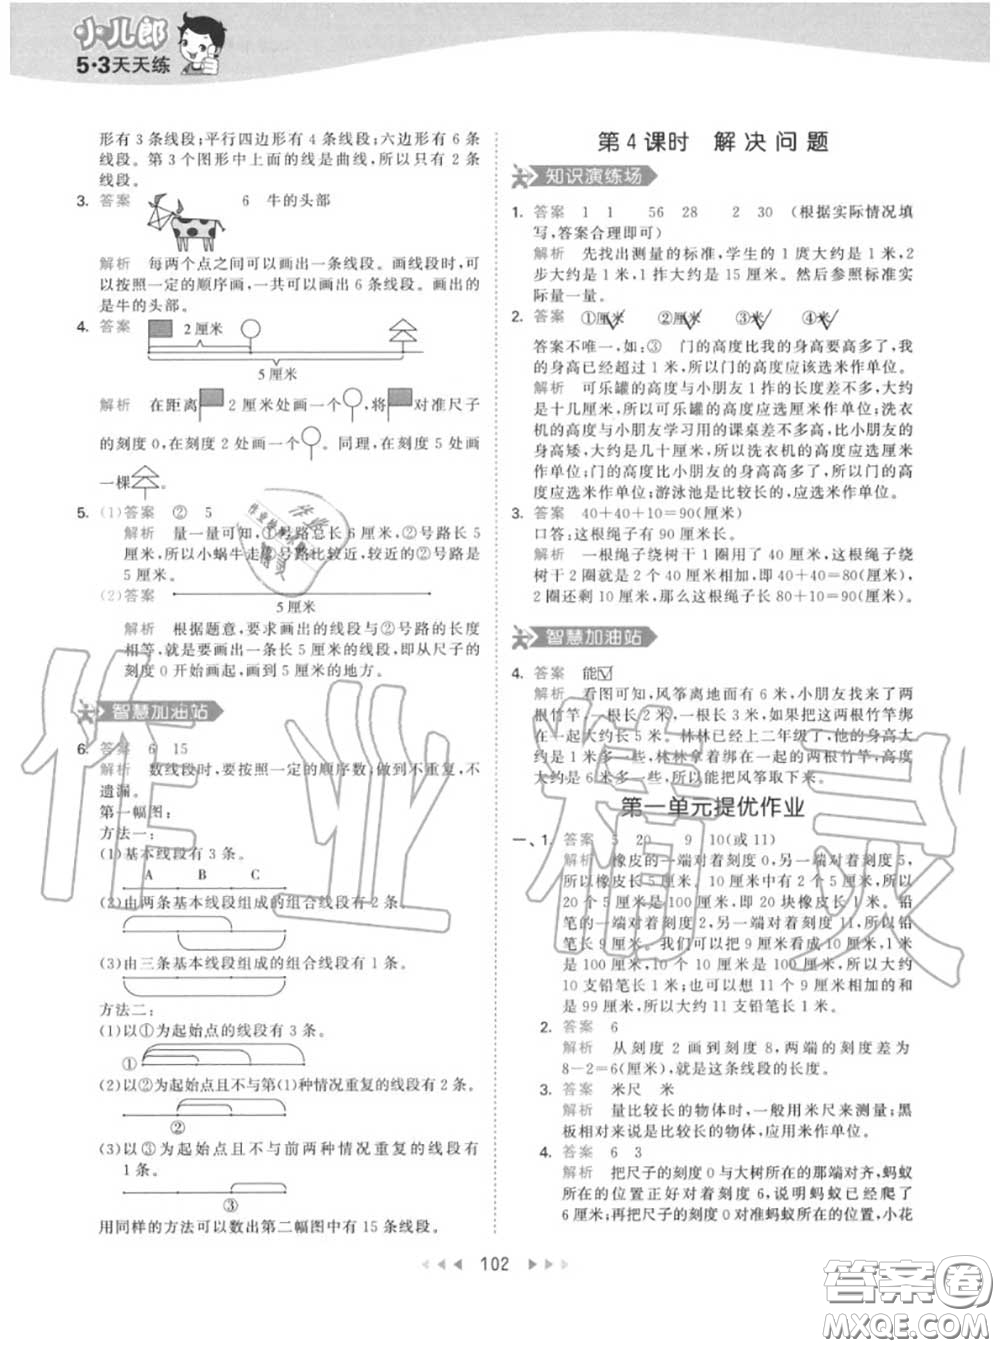 小儿郎
5·3天天练
形有3条线段;平行四边形有4条线段;六边形有6条
线段。第3个图形中上面的线是曲线,所以只有2条
线段。
3. 答案 6 牛的头部
解析 每两个点之间可以画出一条线段。画线段时,可
以按照一定的顺序画,一共可以画出6条线段。画出的
是牛的头部。
4. 答案 2厘米
5厘米
解析 在距离 2厘米处画一个 ,将 对准尺子
的刻度0,在刻度2处画一个 。同理,在刻度5处画
一棵 。
5. (1)答案 ② 5
解析 量一量可知,①号路总长6厘米,②号路长5
厘米,所以小蜗牛走②号路比较近,较近的②号路是
5厘米。
(2)答案
5厘米
解析 根据题意,要求画出的线段与②号路的长度
相等,就是要画出一条长5厘米的线段,即从尺子的
刻度0开始画起,画到5厘米的地方。
智慧加油站
6. 答案 6 15
解析 数线段时,要按照一定的顺序数,做到不重复、不
遗漏。
第一幅图:
方法一:
(1)基本线段有3条。
A B C
(2)由两条基本线段组成的组合线段有2条。
(3)由三条基本线段组成的组合线段有1条。
方法二:
(1)以①为起始点的线段有3条。
①
(2)以②为起始点且不与第(1)种情况重复的线段有2条。
②
(3)以③为起始点且不与前两种情况重复的线段有
1条。
③
用同样的方法可以数出第二幅图中有15条线段。
第4课时 解决问题
知识演练场
1. 答案 1 1 56 28 2 30 (根据实际情况填
写,答案合理即可)
解析 先找出测量的标准,学生的1庹大约是1米,2
步大约是1米,1拃大约是15厘米。然后参照标准估
实际量一量。
2. 答案 ①厘米 ②厘米 ③米 ④米
答案不唯一,如:③ 门的高度比我的身高要高多了,我
的身高已经超过1米,所以门的高度应该选米作单位。
解析 可乐罐的高度与小朋友1拃的长度差不多,大约
是十几厘米,所以可乐罐的高度应选厘米作单位;洗衣
机的高度与小朋友学习用的课桌差不多高,比小朋友的
身高矮,大约是几十厘米,所以洗衣机的高度应选厘米
作单位;门的高度比小朋友的身高高多了,所以门的高
度应选米作单位;游泳池是比较长的,应选米作单位。
3. 答案 40+40+10=90(厘米)
口答:这根绳子有90厘米长。
解析 一根绳子绕树干1圈用了40厘米,这根绳子绕
树干2圈就是2个40厘米相加,即40+40=80(厘米),
2圈还剩10厘米,那么这根绳子长80+10=90(厘米)。
智慧加油站
4. 答案 能
解析 看图可知,风筝离地面有6米,小朋友找来了两
根竹竿,一根长2米,一根长3米,如果把这两根竹竿绑
在一起大约长5米。林林已经上二年级了,他的身高大
约是1米多一些,林林拿着绑在一起的两根竹竿,高度
大约是6米多一些,所以能把风筝取下来。
第一单元提优作业
一、1. 答案 5 20 9 10(或11)
解析 橡皮的一端对着刻度0,另一端对着刻度5,
所以橡皮长5厘米。10厘米中有2个5厘米,所以
20个5厘米是1米,即20块橡皮长1米。铅
笔的一端对着刻度2,另一端对着刻度11,所以铅
笔长9厘米。我们可以把9厘米看成10厘米,1米
是100厘米,10个10厘米是100厘米,所以大约
10支铅笔长1米;也可以想11个9厘米相加的和
是99厘米,所以大约11支铅笔长1米。
2. 答案 6
解析 从刻度2画到刻度8,两端的刻度差为
8-2=6(厘米),就是这条线段的长度。
3. 答案 米尺 米
解析 量比较长的物体时,一般用米尺来测量;黑
板相对来说是比较长的物体,应用米作单位。
4. 答案 6 3
解析 把尺子的刻度0与大树所在的那端对齐,蚂蚁
所在的位置正好对着刻度6,说明蚂蚁与大树相距
6厘米;再把尺子的刻度0对准蚂蚁所在的位置,小花
102
作业精灵
答案圈
MXQE.COM